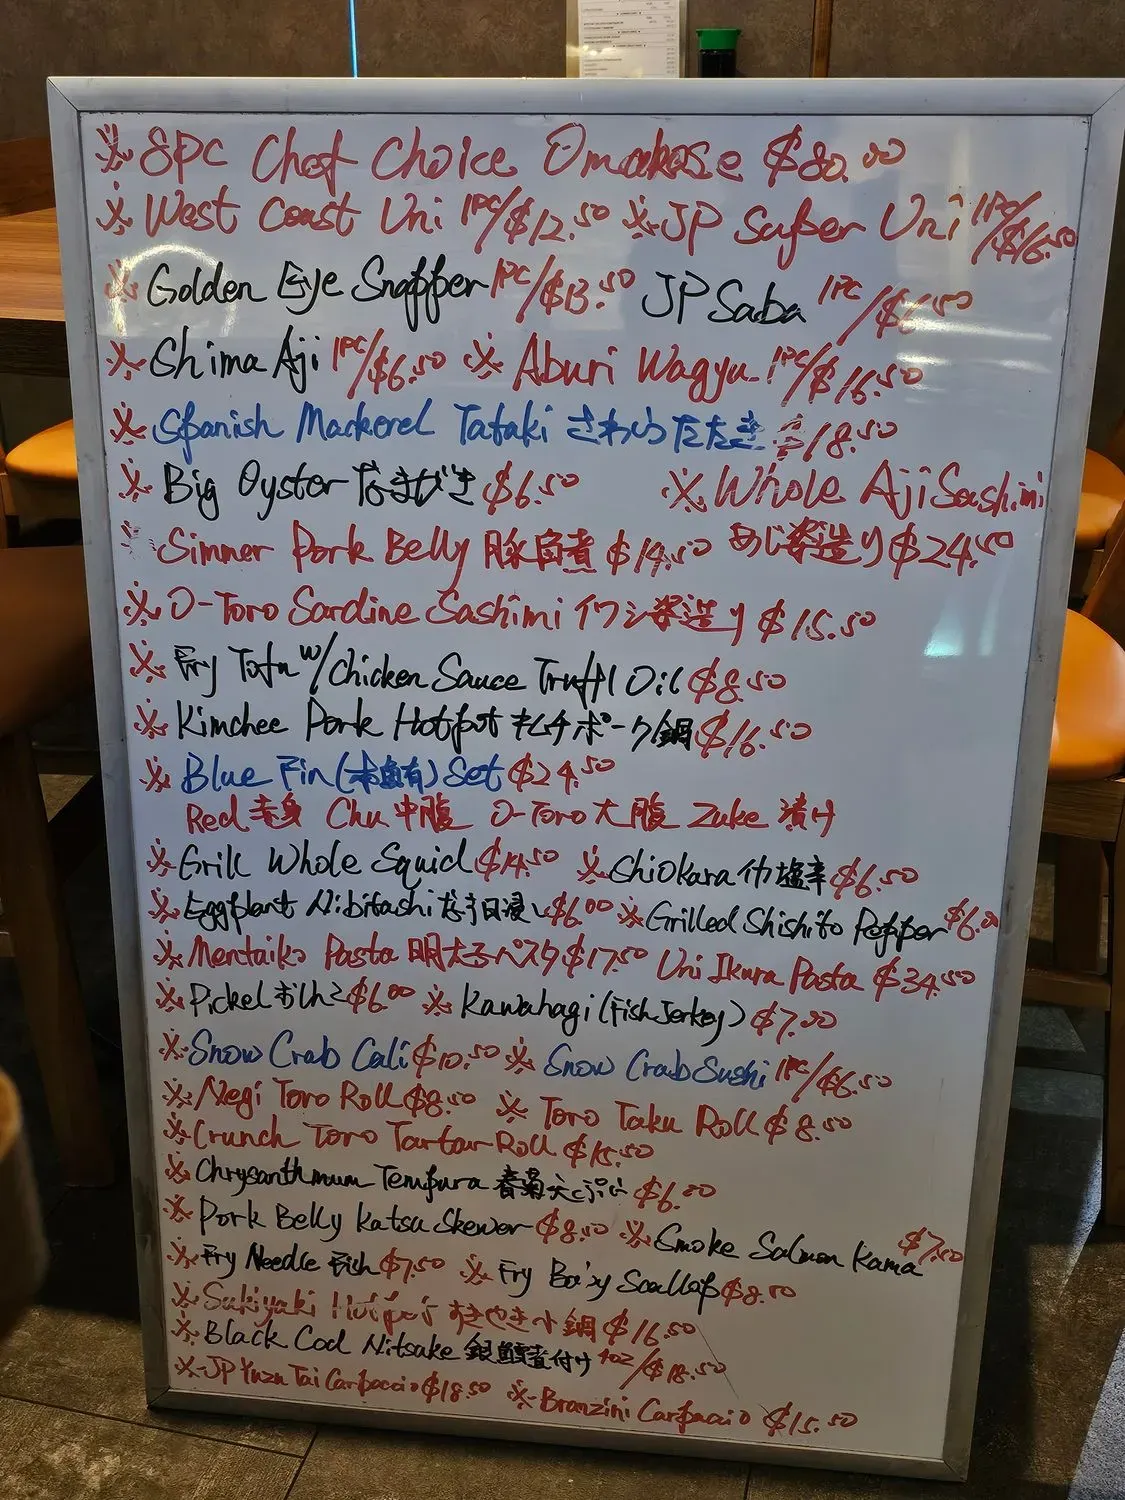 ※ 8PC Chef Choice Omakase $80.00
※ West Coast Uni 1PC/$12.50 ※ JP Super Uni 1PC/$16.50
※ Golden Eye Snapper 1PC/$13.50 JP Saba 1PC/$6.50
※ Shima Aji 1PC/$6.50 ※ Aburi Wagyu 1PC/$16.50
※ Spanish Mackerel Tataki さわらたたき $18.50
※ Big Oyster なまがき $6.50 ※ Whole Aji Sashimi
Simmer Pork Belly 豚角煮 $14.50 あじ姿造り $24.50
※ O-Toro Sardine Sashimi イワシ姿造り $15.50
※ Fry Tofu w/Chicken Sauce Truffl Oil $8.50
※ Kimchee Pork Hotpot キムチポーク鍋 $16.50
※ Blue Fin (本鮪) Set $24.50
Red 赤身 Chu 中腹 O-Toro 大腹 Zuke 漬け
※ Grill Whole Squid $14.50 ※ Shiokara イカ塩辛 $6.50
※ Eggplant Nibitashi $6.00 ※ Grilled Shishito Pepper $6.00
※ Mentaiko Pasta 明太子パスタ $17.50 Uni Ikura Pasta $34.50
※ Pickel おしんこ $6.00 ※ Kawahagi (Fish Jerkey) $7.00
※ Snow Crab Cali $10.50 ※ Snow Crab Sushi 1PC/$6.50
※ Negi Toro Roll $8.50 ※ Toro Taku Roll $8.50
※ Crunch Toro Tartar Roll $15.50
※ Chrysanthmum Tempura 春菊天ぷら $6.00
※ Pork Belly Katsu Skewer $8.50 ※ Smoke Salmon Kama $7.50
※ Fry Needle Fish $7.50 ※ Fry Scallop $8.50
※ Sukiyaki Hotpot すきやき小鍋 $16.50
※ Black Cod Nitsuke 銀鱈煮付け 4oz/$18.50
※ JP Yuzu Tai Carpaccio $18.50 ※ Branzini Carpaccio $15.50